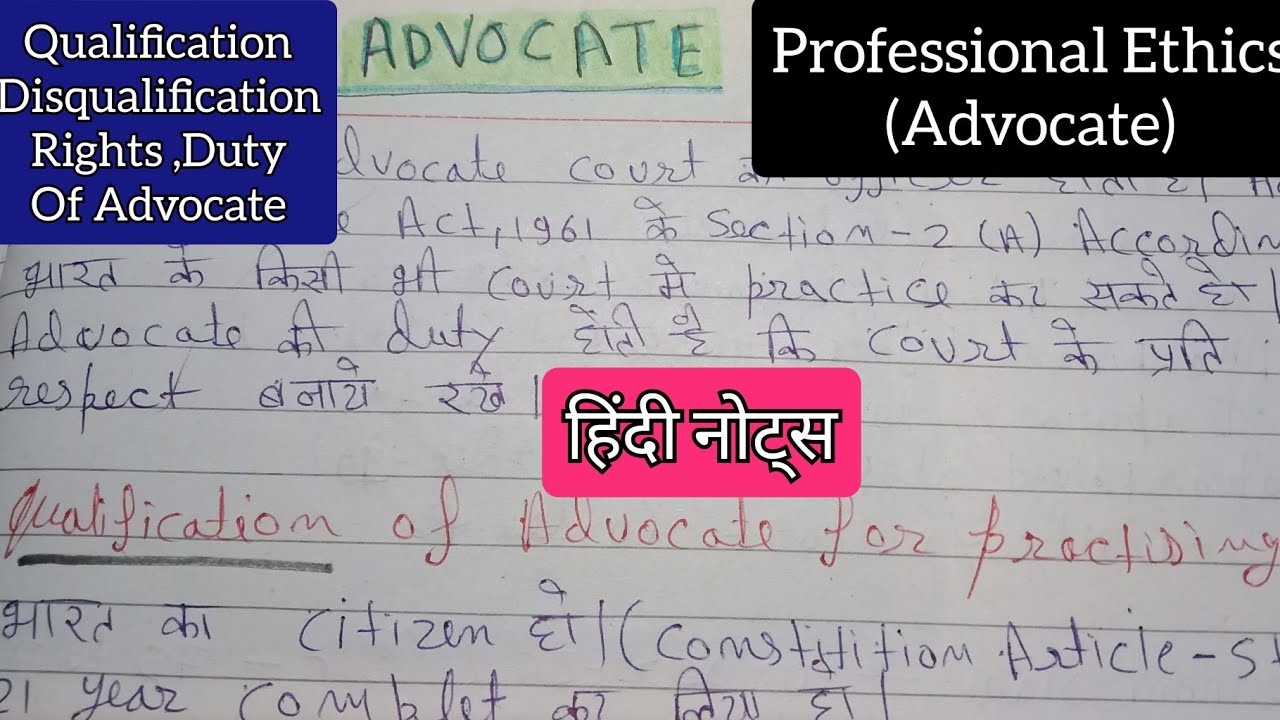 Qualification
Disqualification
Rights ,Duty
Of Advocate
ADVOCATE
Professional Ethics
(Advocate)
dvocate court
Act, 1961 के Section-2 (A) Accordin
भारत के किसी भी court मे practice कर सकते हो।
Advocate की duty होती है कि court के प्रति
respect बनाये रखे।
हिंदी नोट्स
Qualification of Advocate for practising
भारत का citizen हो। (Constitition Article-5
21 year complet कर लिया हो।